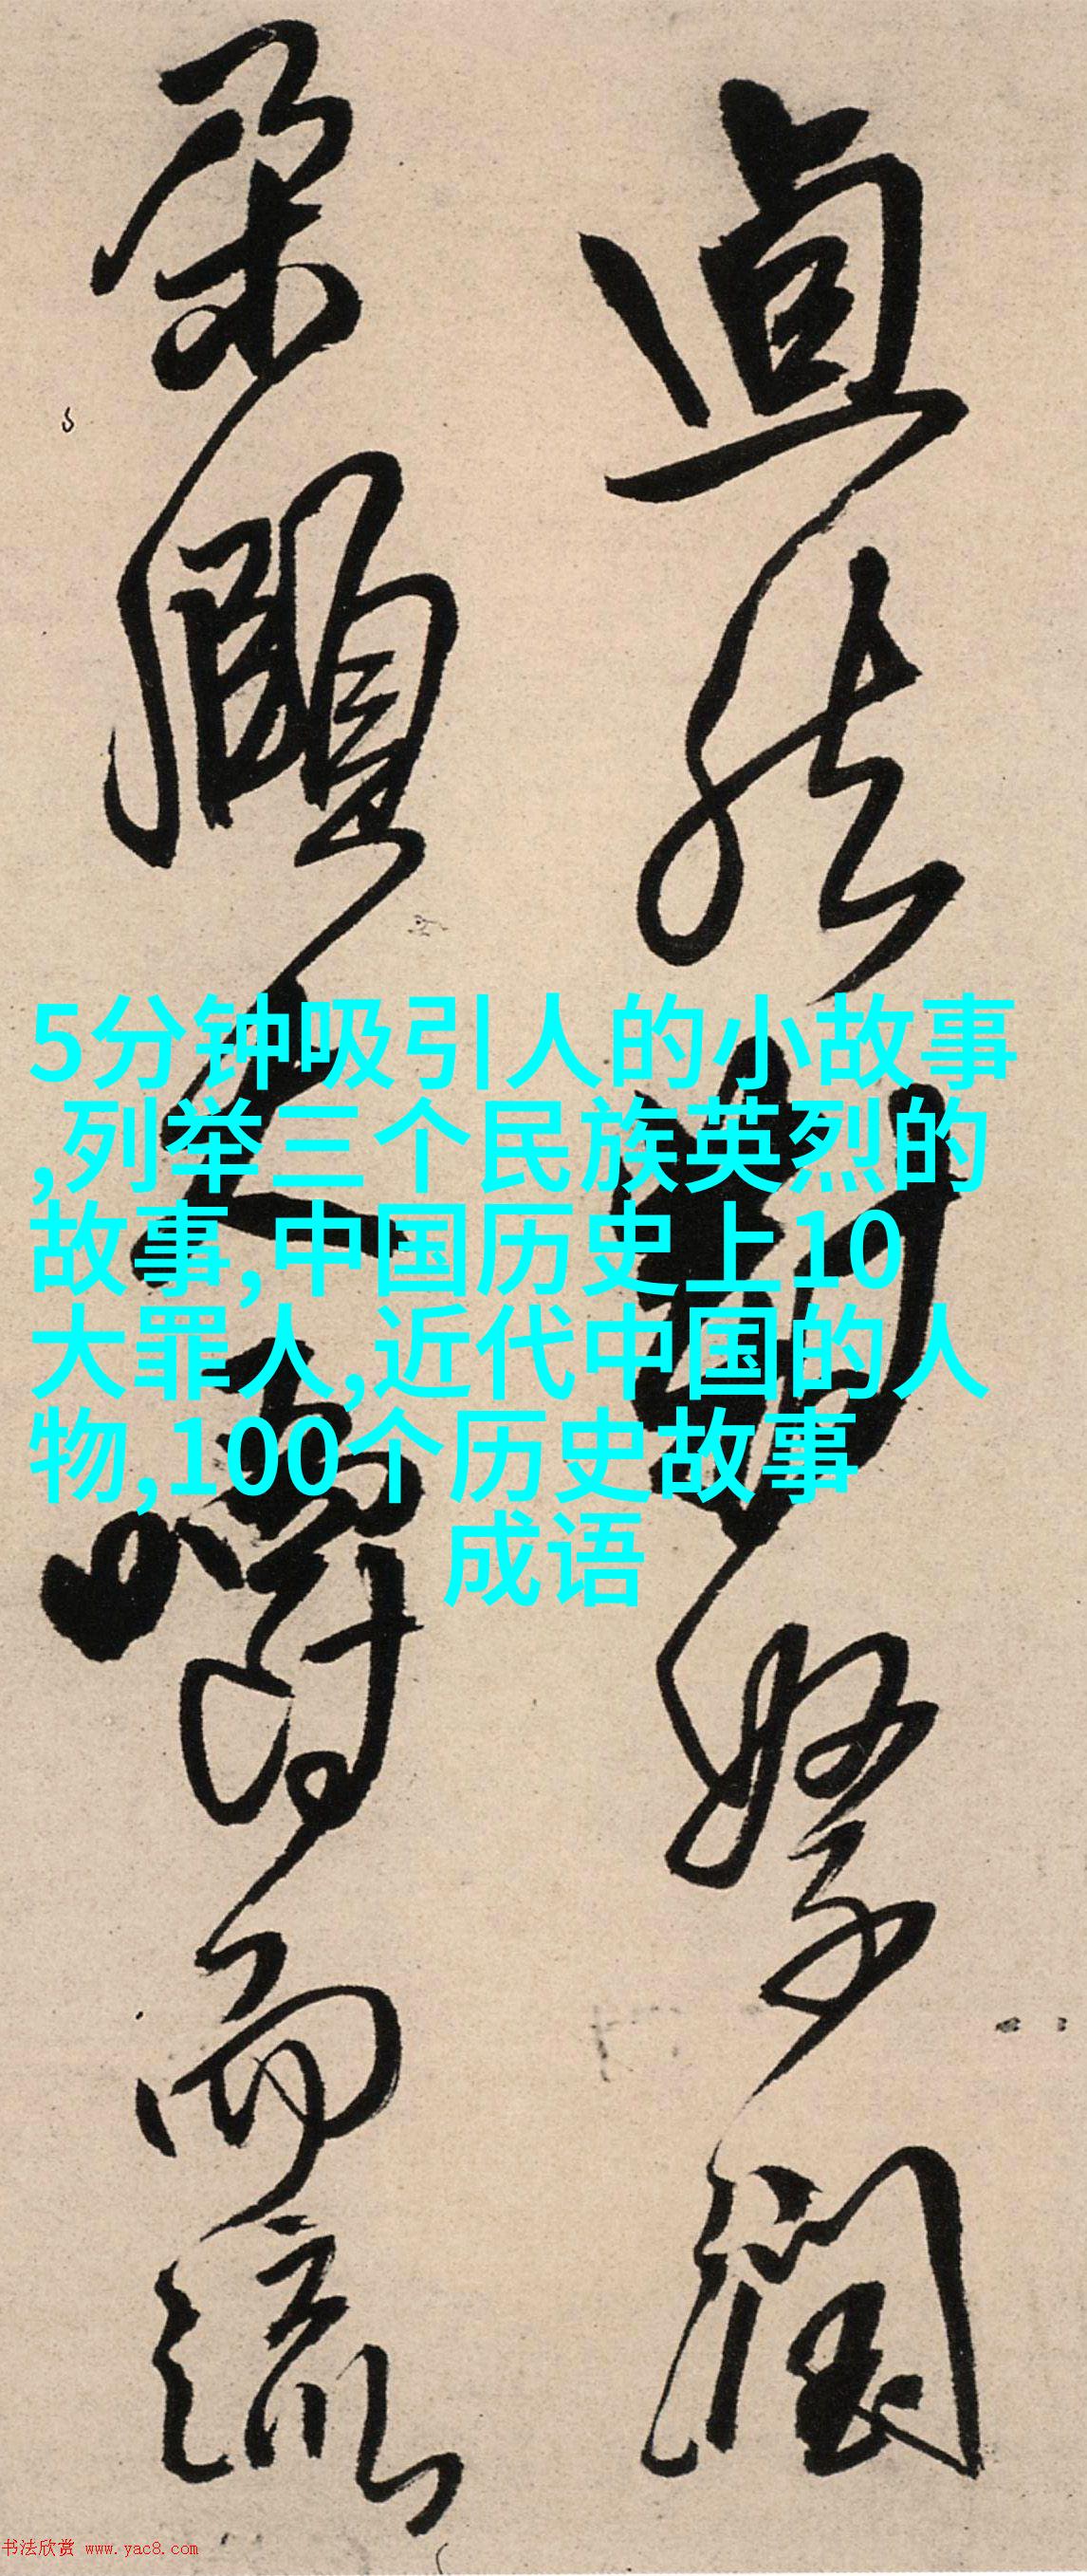 5分钟吸引人的小故事
,列举三个民族英烈的
故事,中国历史上10
大罪人,近代中国的人
物,100个历史故事
成语
然 潤
朵頤大嚼而流
书法欣赏 www.yac8.com